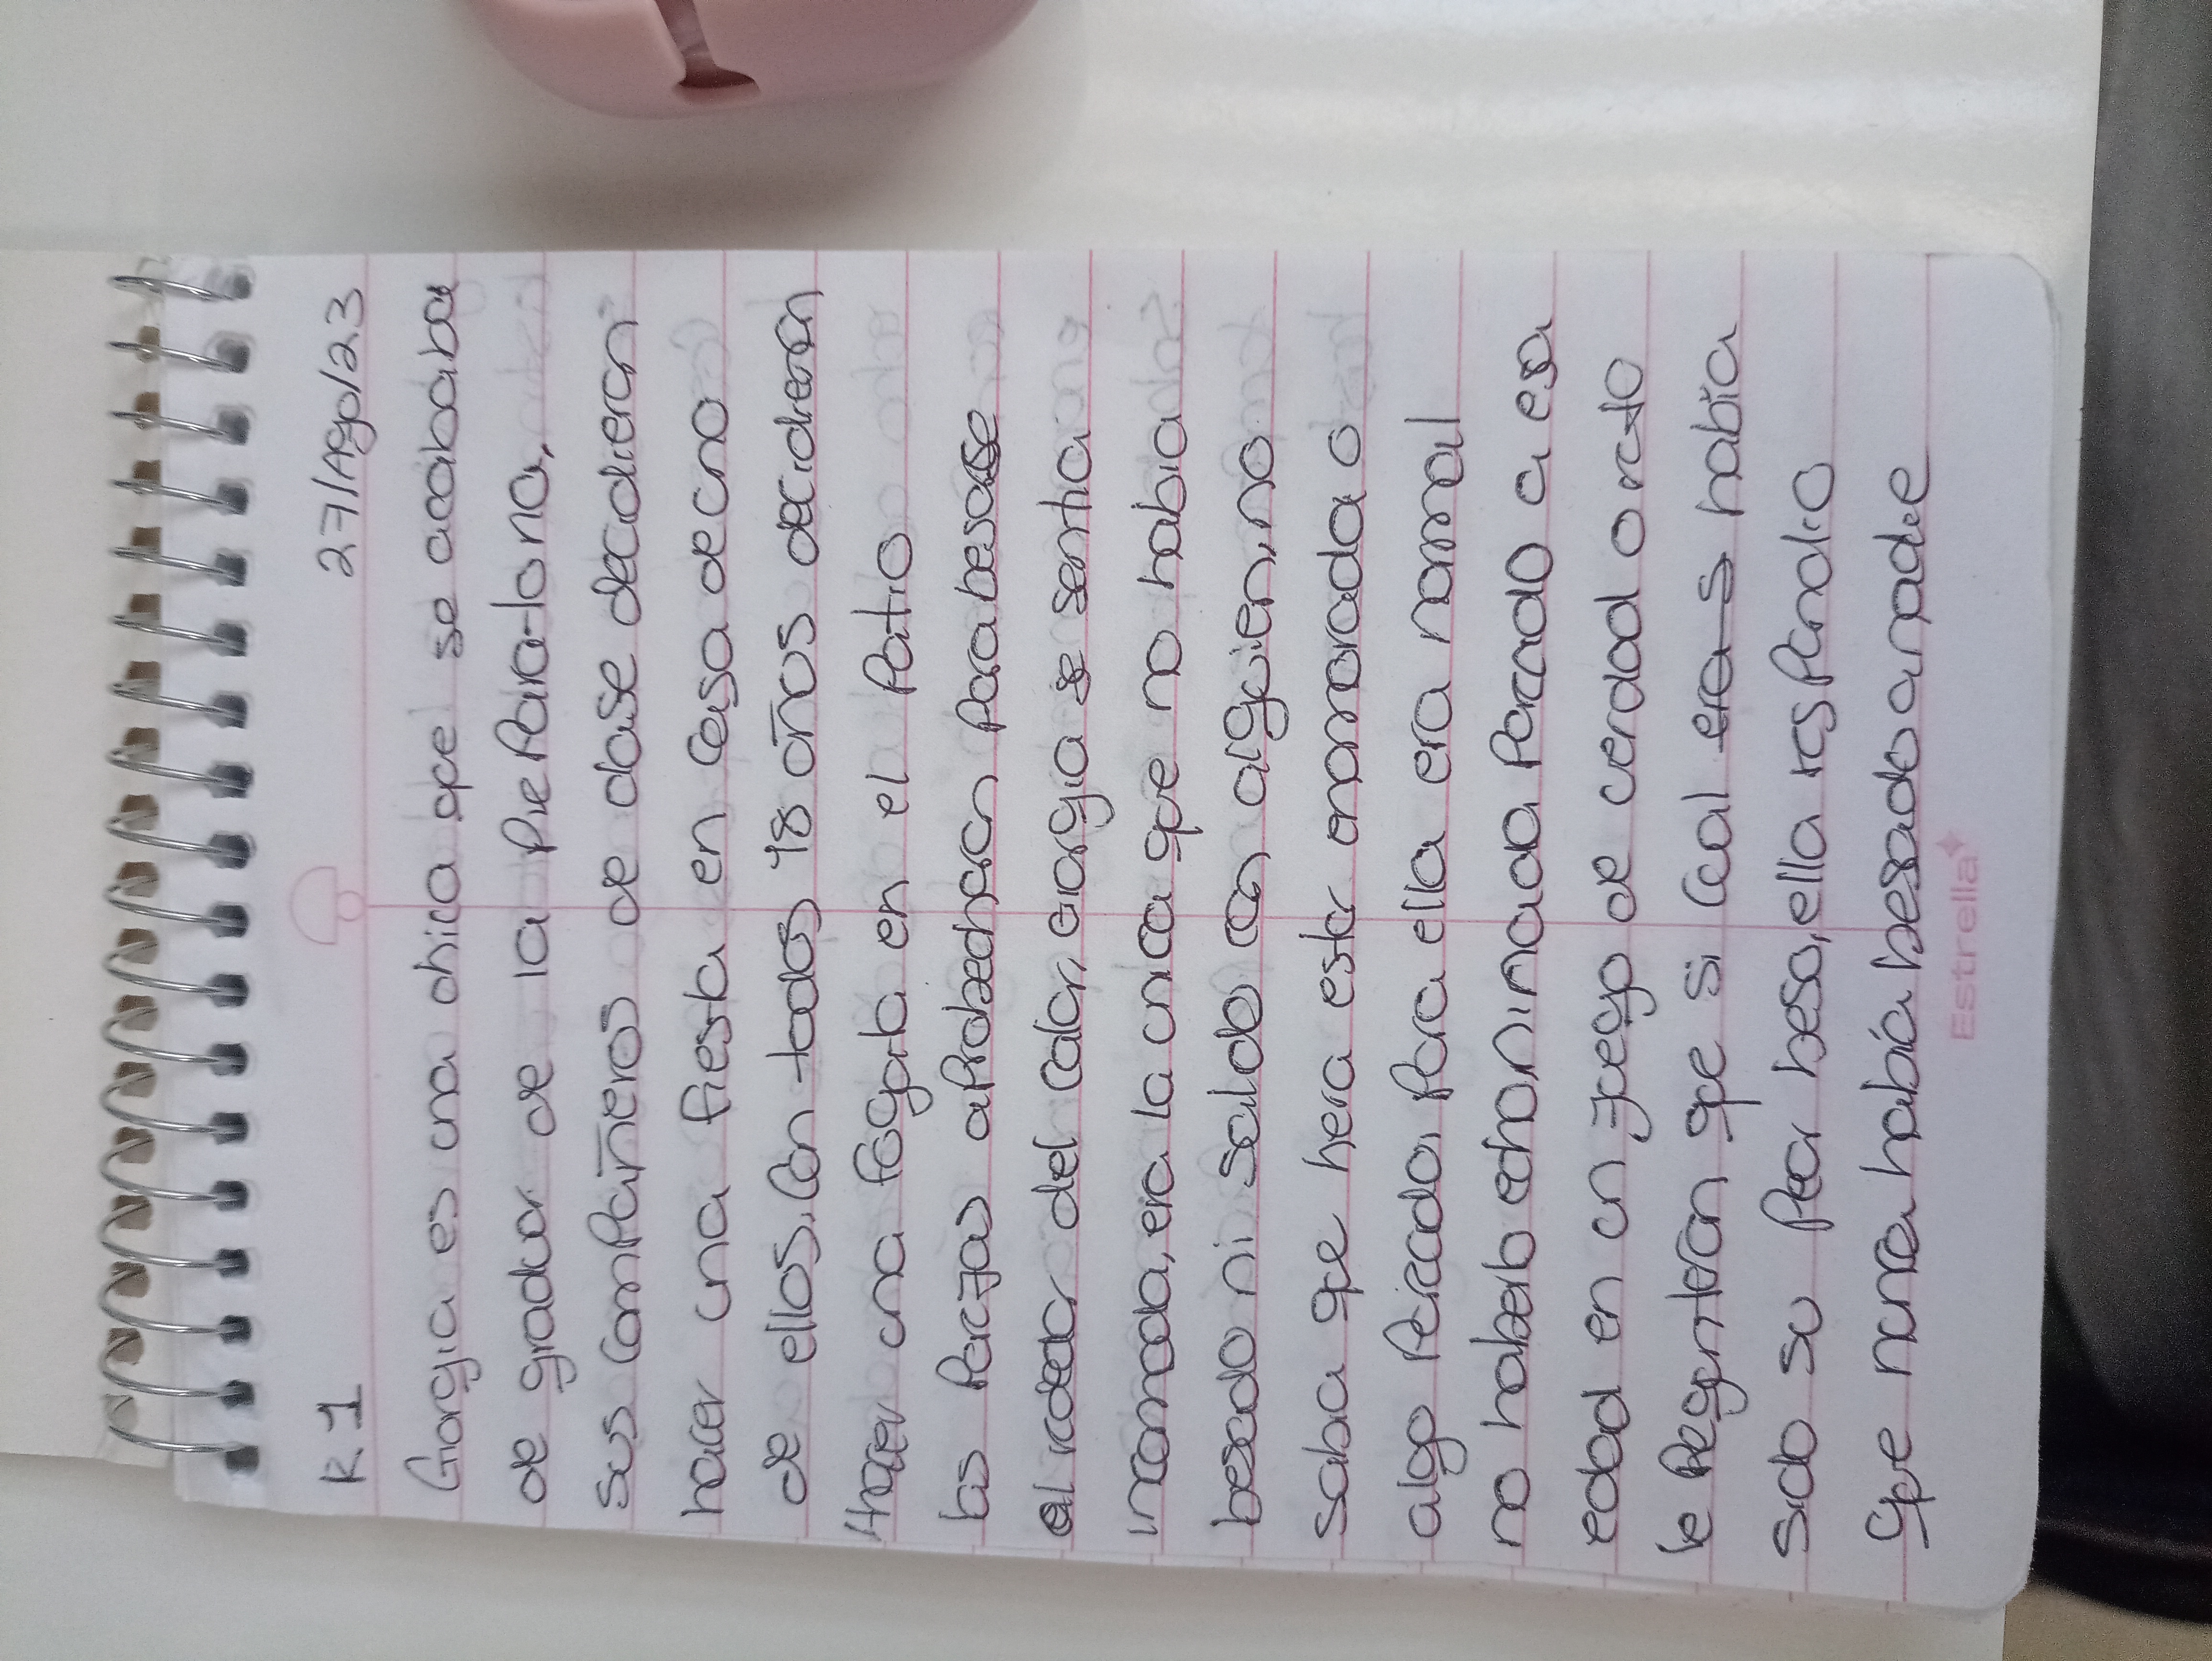 R.1 27/Ago/23
Giorgia es una chica que se acababa
de graduar de la preparatoria,
sus compañeros de clase decidieron
hacer una fiesta en casa de uno
de ellos. Con todos 18 años decidieron
hacer una fogata en el patio
las parejas aprobecharon para besarse
alrededor del calor, Giorgia se sentia
incomoda, era la unica que no habia
besado ni salido con alguien, no
sabia que hera estar enamorada o
algo parecido, para ella era normal
no haberlo echo ninuada parado a esa
edad en un juego de verdad o reto
le preguntaron que si cual era s había
sido su peor beso, ella respondio
que nunca había besado a nadie
Estrella